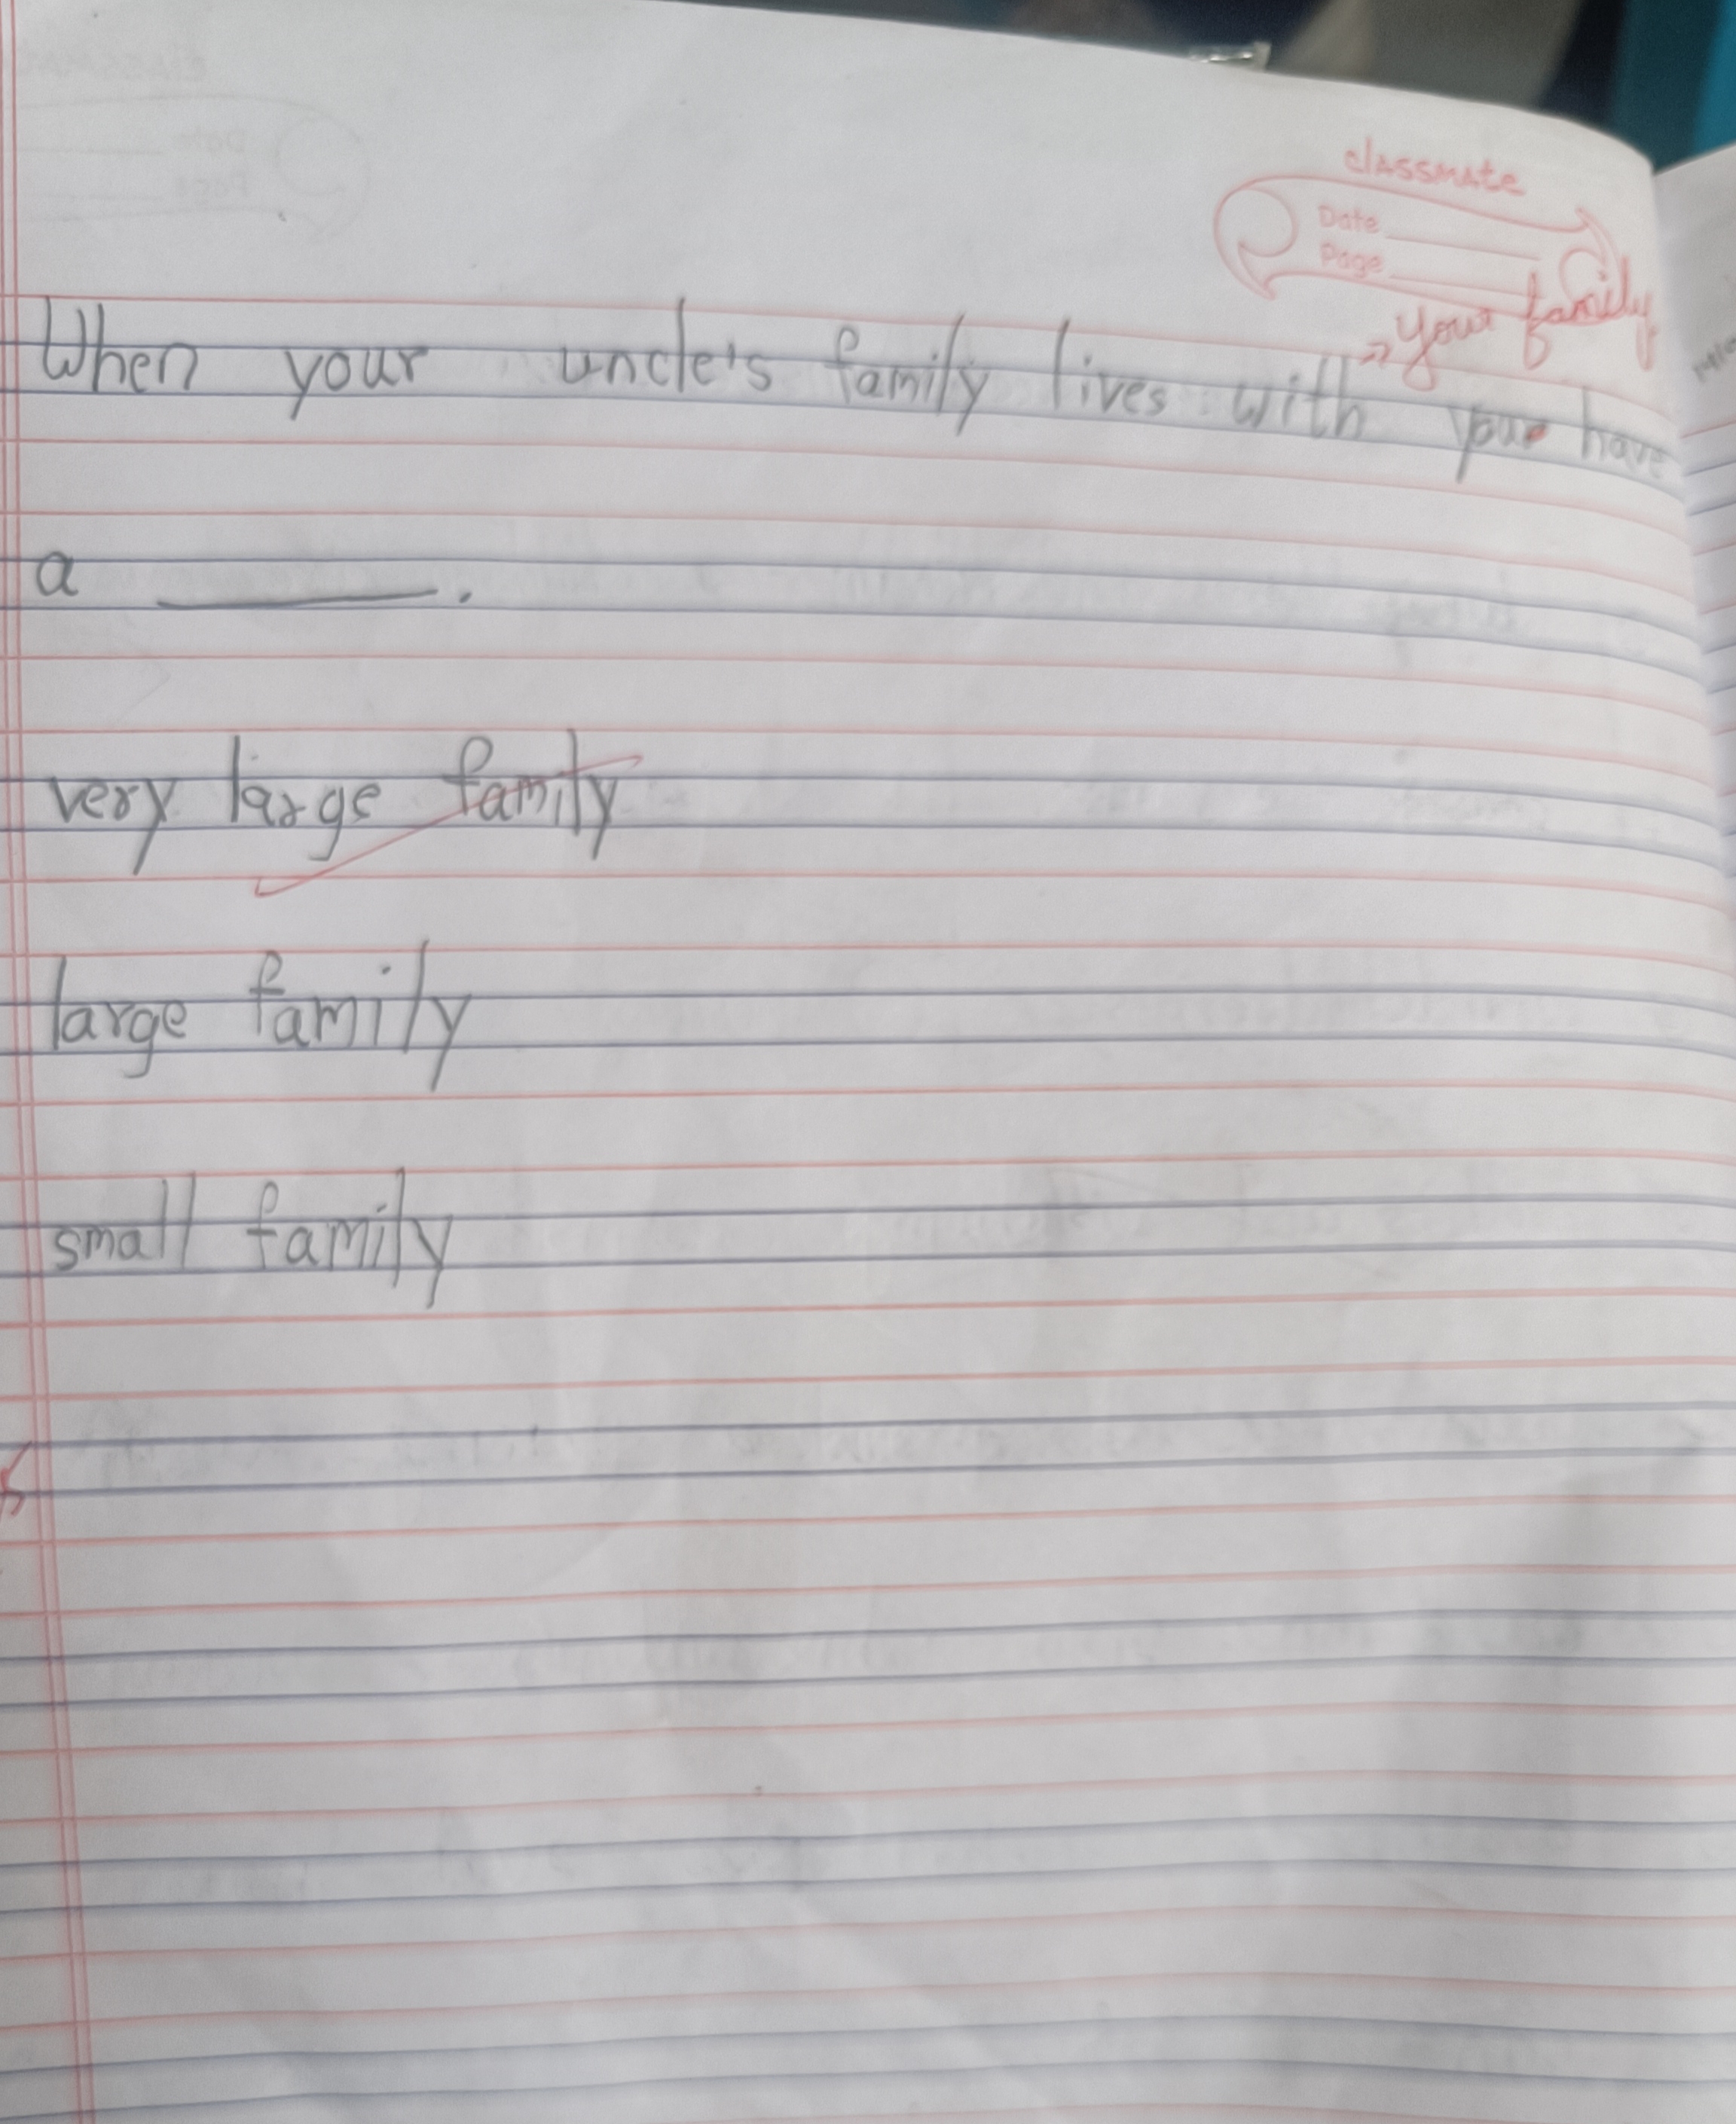 classmate
Date
Page
Your family
When your uncle's family lives with your have
a ______.
very large family
large family
small family